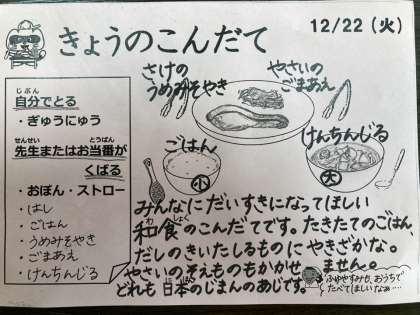 きょうのこんだて
12/22（火）
自分でとる
じぶん
・ぎゅうにゅう
せんせい とうばん
先生またはお当番が
くばる
・おぼん・ストロー
・はし
・ごはん
・うめみそやき
・ごまあえ
・けんちんじる
さけの
うめみそやき
やさいの
ごまあえ
ごはん
小
けんちんじる
大
みんなにだいすきになってほしい
わしょく
和食のこんだてです。たきたてのごはん、
だしのきいたしるものに やきざかな。
やさいのそえものもかかせません。
にほん
どれも日本のじまんのあじです。
ふゆやすみも、おうちで
たべてほしいなぁ…